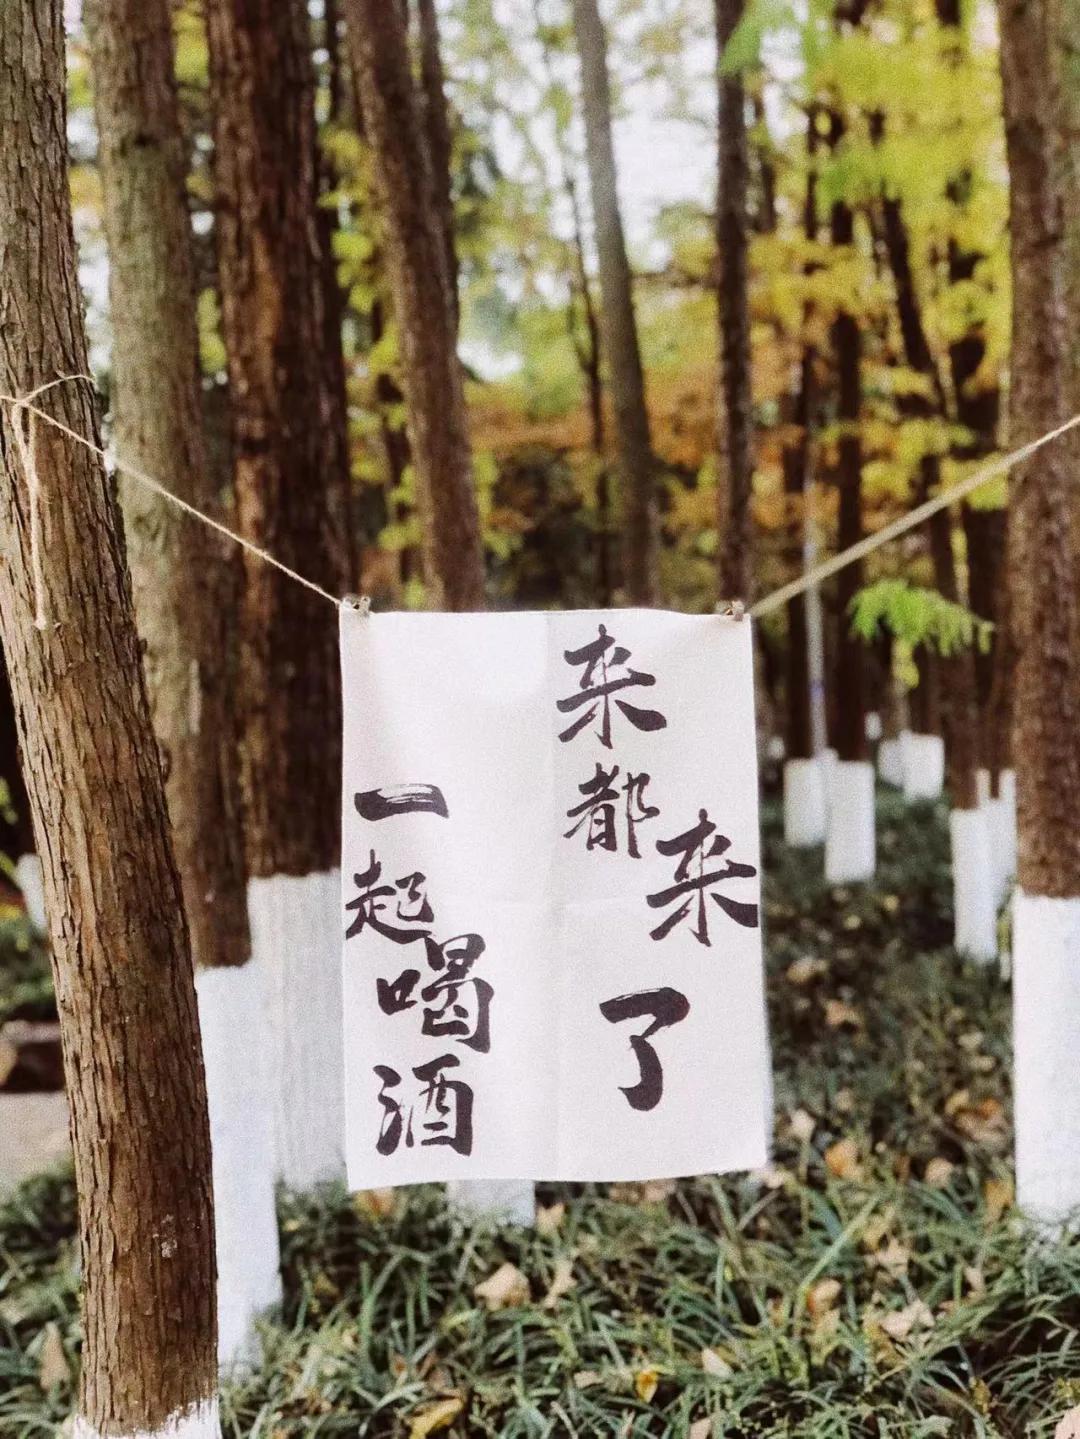 来都来了
一起喝酒